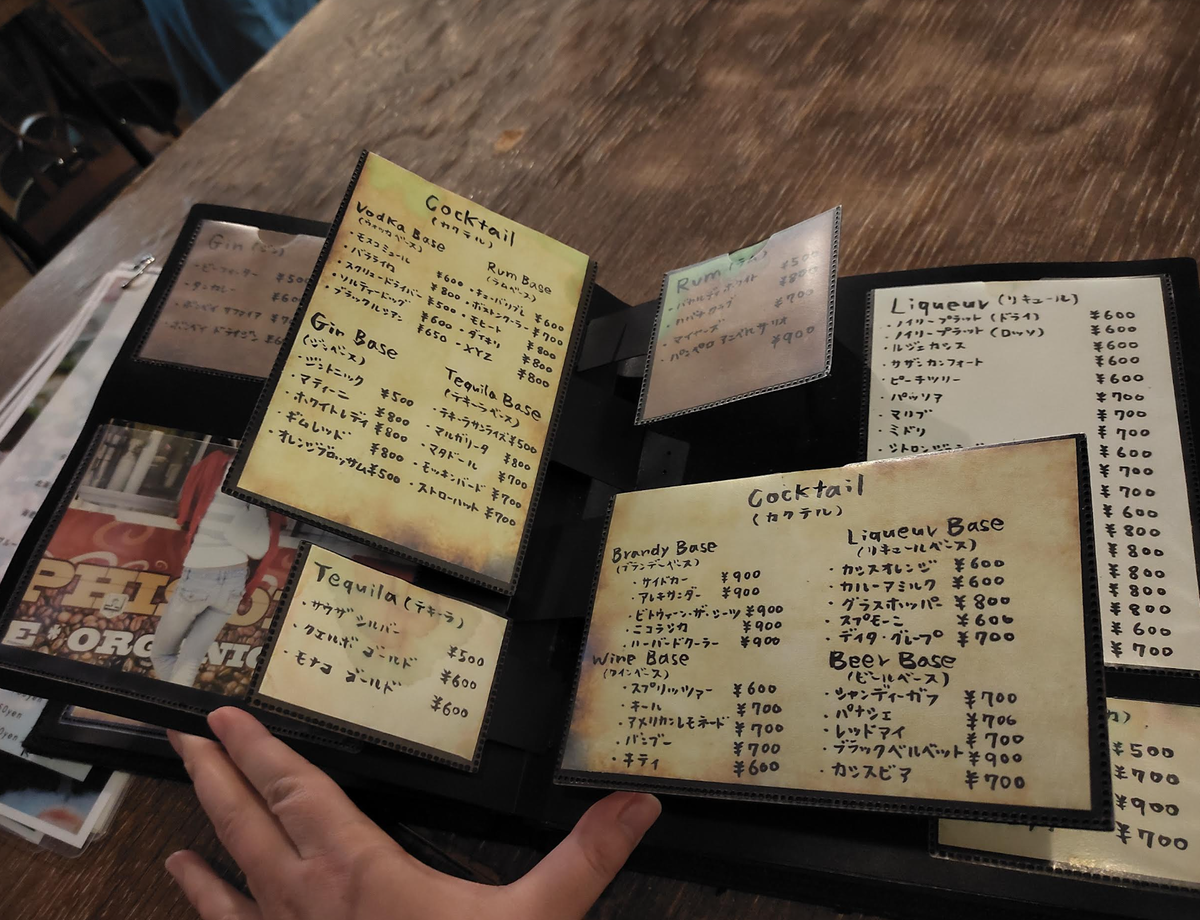 Gin (ジン)
・ビーフィーター ¥500
・タンカレー ¥600
・ボンベイ サファイア
・ボンベイ ドライジン
Cocktail
(カクテル)
Vodka Base
(ウォッカベース)
・モスコミュール ¥600
・バラライカ ¥800
・スクリュードライバー ¥500
・ソルティードッグ ¥600
・ブラックルシアン ¥650
Gin Base
(ジンベース)
・ジントニック ¥500
・マティーニ ¥800
・ホワイトレディ ¥800
・ギムレット ¥800
・オレンジブロッサム ¥500
Rum Base
(ラムベース)
・キューバリブレ ¥600
・ボストンクーラー ¥700
・モヒート ¥800
・ダイキリ ¥800
・XYZ ¥800
Tequila Base
(テキーラベース)
・テキーラサンライズ ¥500
・マルガリータ ¥800
・マタドール ¥700
・モッキンバード ¥700
・ストローハット ¥700
Tequila (テキーラ)
・サウザ シルバー ¥500
・クエルボ ゴールド ¥600
・モナコ ゴールド ¥600
Rum (ラム)
・バカルディ ホワイト ¥500
・ハバナクラブ ¥800
・マイヤーズ ¥700
・パンペロ アニベルサリオ ¥900
Liqueur (リキュール)
・ノイリープラット (ドライ) ¥600
・ノイリープラット (ロッソ) ¥600
・ルジェカシス ¥600
・サザンカンフォート ¥600
・ピーチツリー ¥600
・パッソア ¥700
・マリブ ¥700
・ミドリ ¥700
¥600
¥700
¥700
¥600
¥800
¥800
¥800
¥800
¥600
¥700
Cocktail
(カクテル)
Brandy Base
(ブランデーベース)
・サイドカー ¥900
・アレキサンダー ¥900
・ビトウィーン・ザ・シーツ ¥900
・ニコラシカ ¥900
・ハーバードクーラー ¥900
Wine Base
(ワインベース)
・スプリッツァー ¥600
・キール ¥700
・アメリカンレモネード ¥700
・バンブー ¥700
・キティ ¥600
Liqueur Base
(リキュールベース)
・カシスオレンジ ¥600
・カルーアミルク ¥600
・グラスホッパー ¥800
・スプモーニ ¥600
・ディタ・グレープ ¥700
Beer Base
(ビールベース)
・シャンディーガフ ¥700
・パナシェ ¥700
・レッドアイ ¥700
・ブラックベルベット ¥900
・カシスビア ¥700
¥500
¥700
¥900
¥700